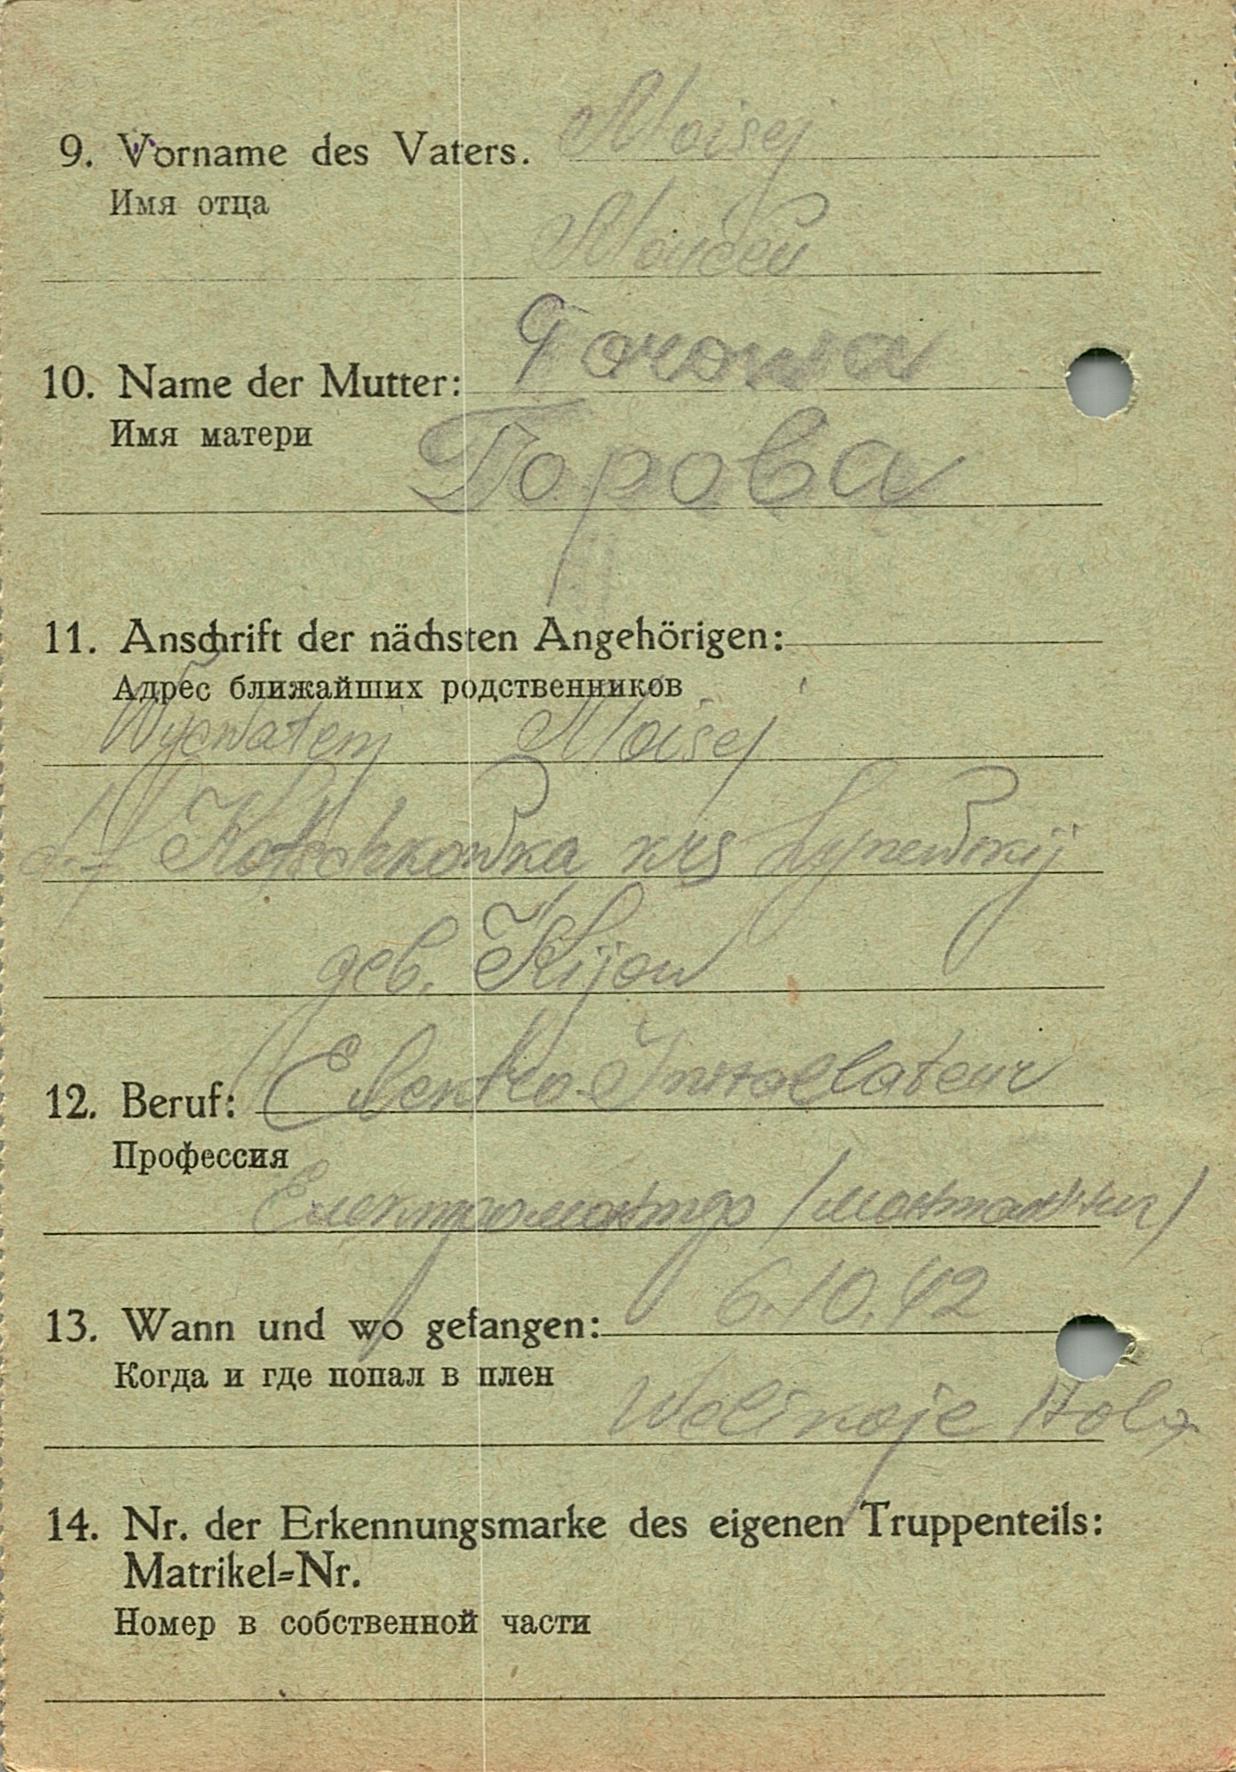 9. Vorname des Vaters. Moisej
Имя отца
Моисей
10. Name der Mutter: Gorowa
Имя матери
Горова
11. Anschrift der nächsten Angehörigen:
Адрес ближайших родственников
Moisej
d.f. Kotschkowka krs
geb. Kijow
12. Beruf: Elektro-Installateur
Профессия
13. Wann und wo gefangen: 6.10.42
Когда и где попал в плен
Welikoje
14. Nr. der Erkennungsmarke des eigenen Truppenteils:
Matrikel-Nr.
Номер в собственной части